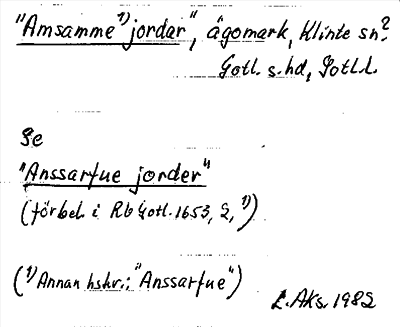 "Amsamme 1) jordar", ägomark, Klinte sn?
Gotl. s. hd, Gotl. l.
Se
"Anssarfue jorder"
(förbel. i Rb Gotl. 1653, 2, 1))
(1) Annan hskr.; "Anssarfue")
L. Aks. 1982